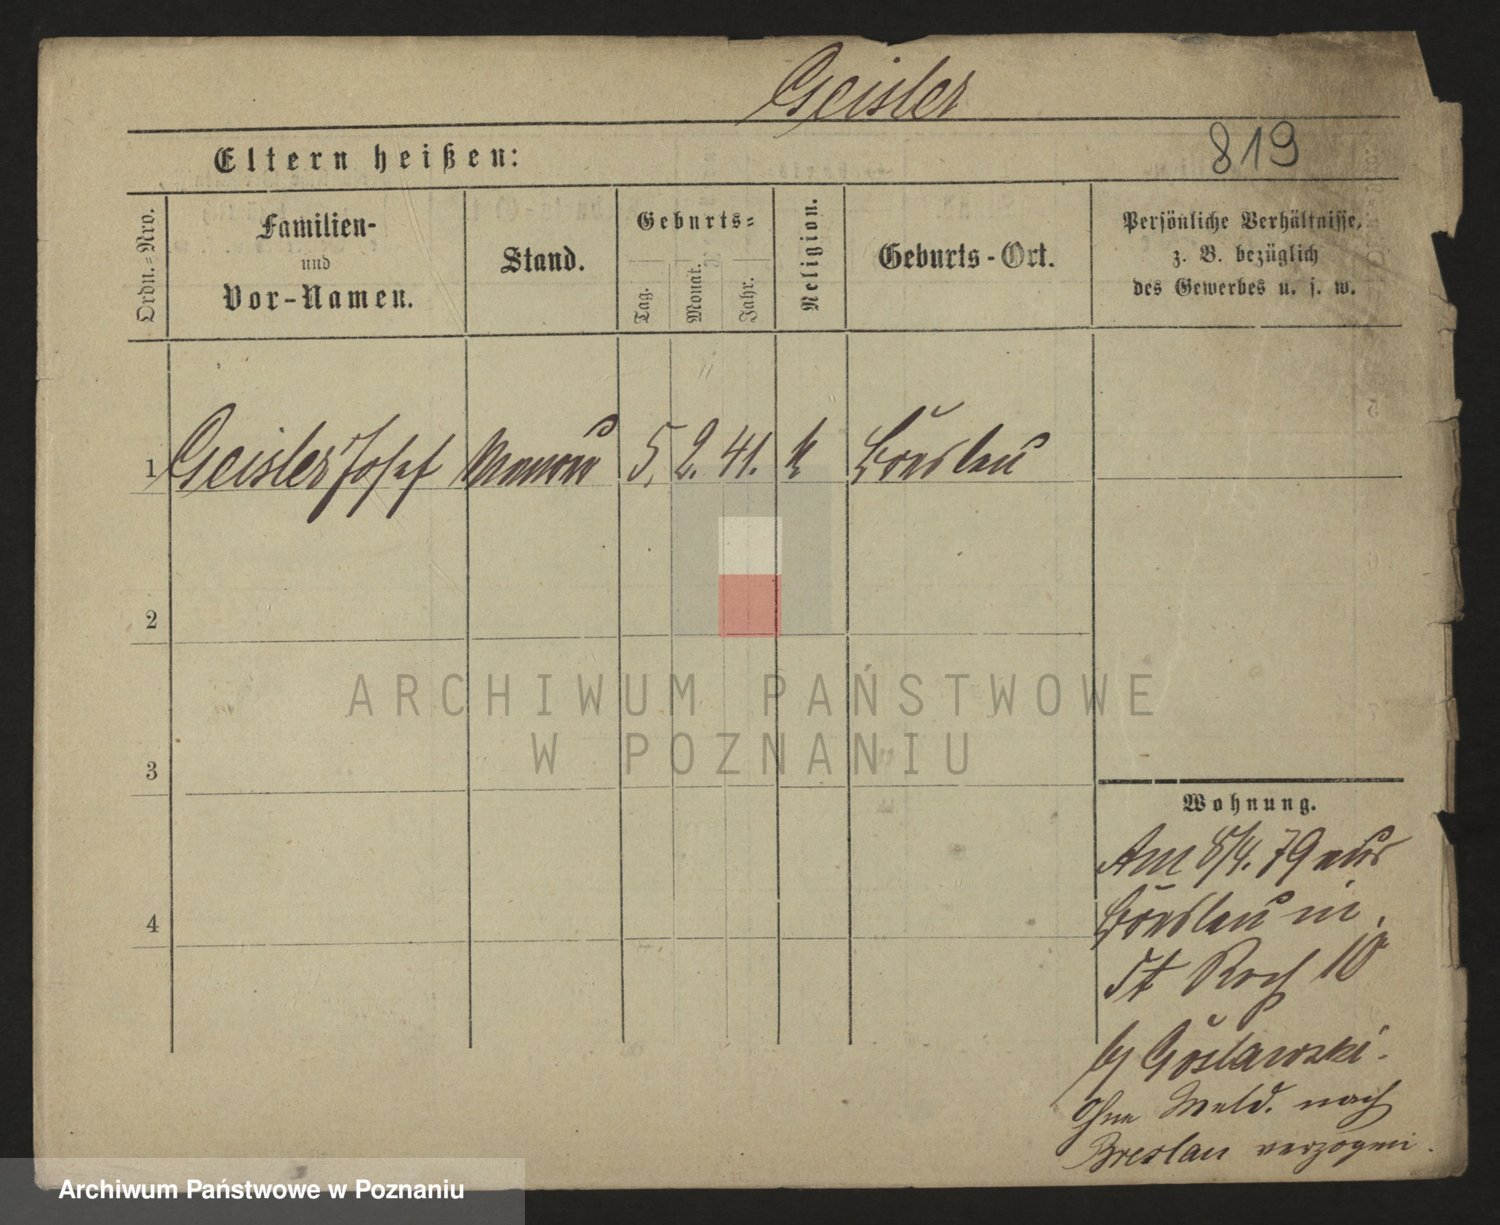 Geisler
819
Eltern heißen:
Ordn.-Nro.
Familien-
und
Vor-Namen.
Stand.
Geburts-
Tag.
Monat.
Jahr.
Religion.
Geburts-Ort.
Persönliche Verhältnisse,
z. B. bezüglich
des Gewerbes u. s. w.
1 Geisler Josef 5. 2. 41. k Breslau
2
3
4
ARCHIWUM PAŃSTWOWE
W POZNANIU
Wohnung.
Am 8/4. 79 aus
Breslau in
St Roch 10
b/ Goslawski.
Ohne Meld. nach
Breslau verzogen.
Archiwum Państwowe w Poznaniu